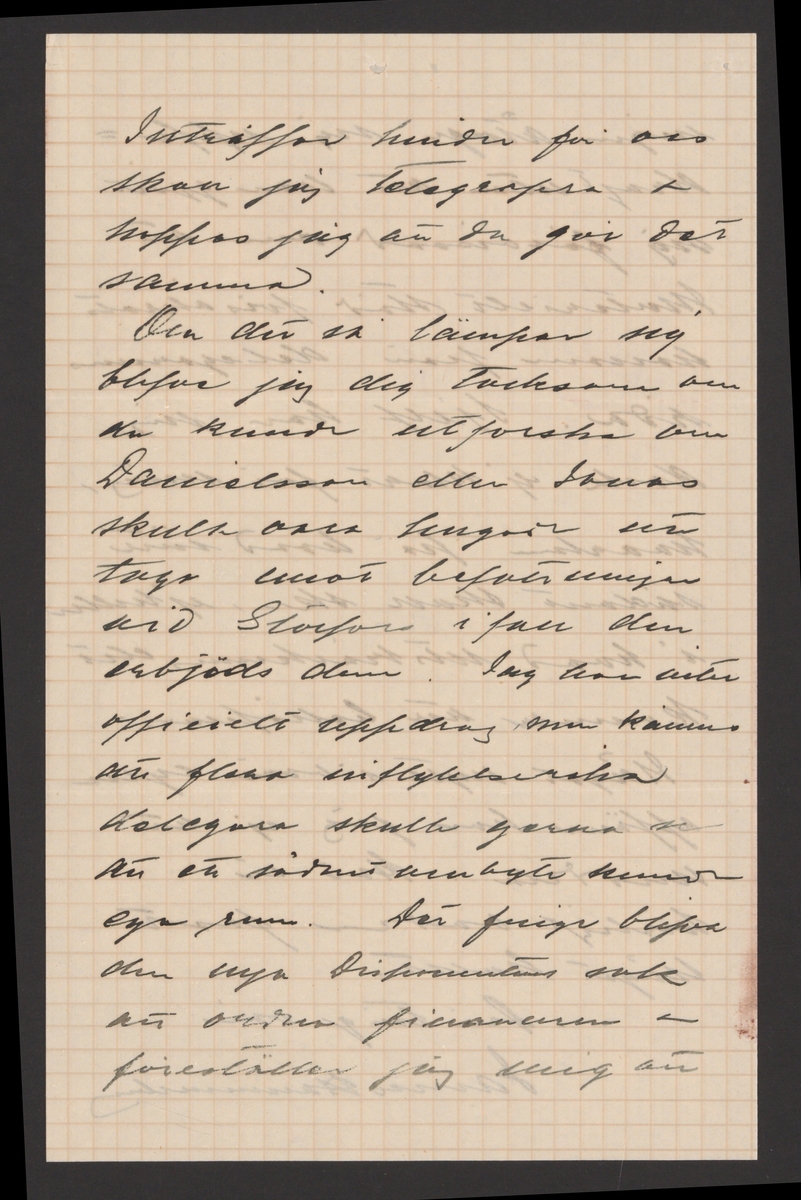 Inträffar hinder för oss
skall jag telegrafera &
hoppas jag att du gör det
samma.
Om det så lämpar sig
blefve jag dig tacksam om
du kunde utforska om
Danielsson eller Jonas
skulle vara hugade att
taga emot befattningen
vid Storfors ifall den
erbjöds dem. Jag har intet
officielt uppdrag men känner
att flera inflytelserika
delegare skulle gerna se
att ett sådant ombyte kunde
ega rum. Det finge blifva
den nya Disponentens sak
att ordna finanserna &
föreställer jag mig att